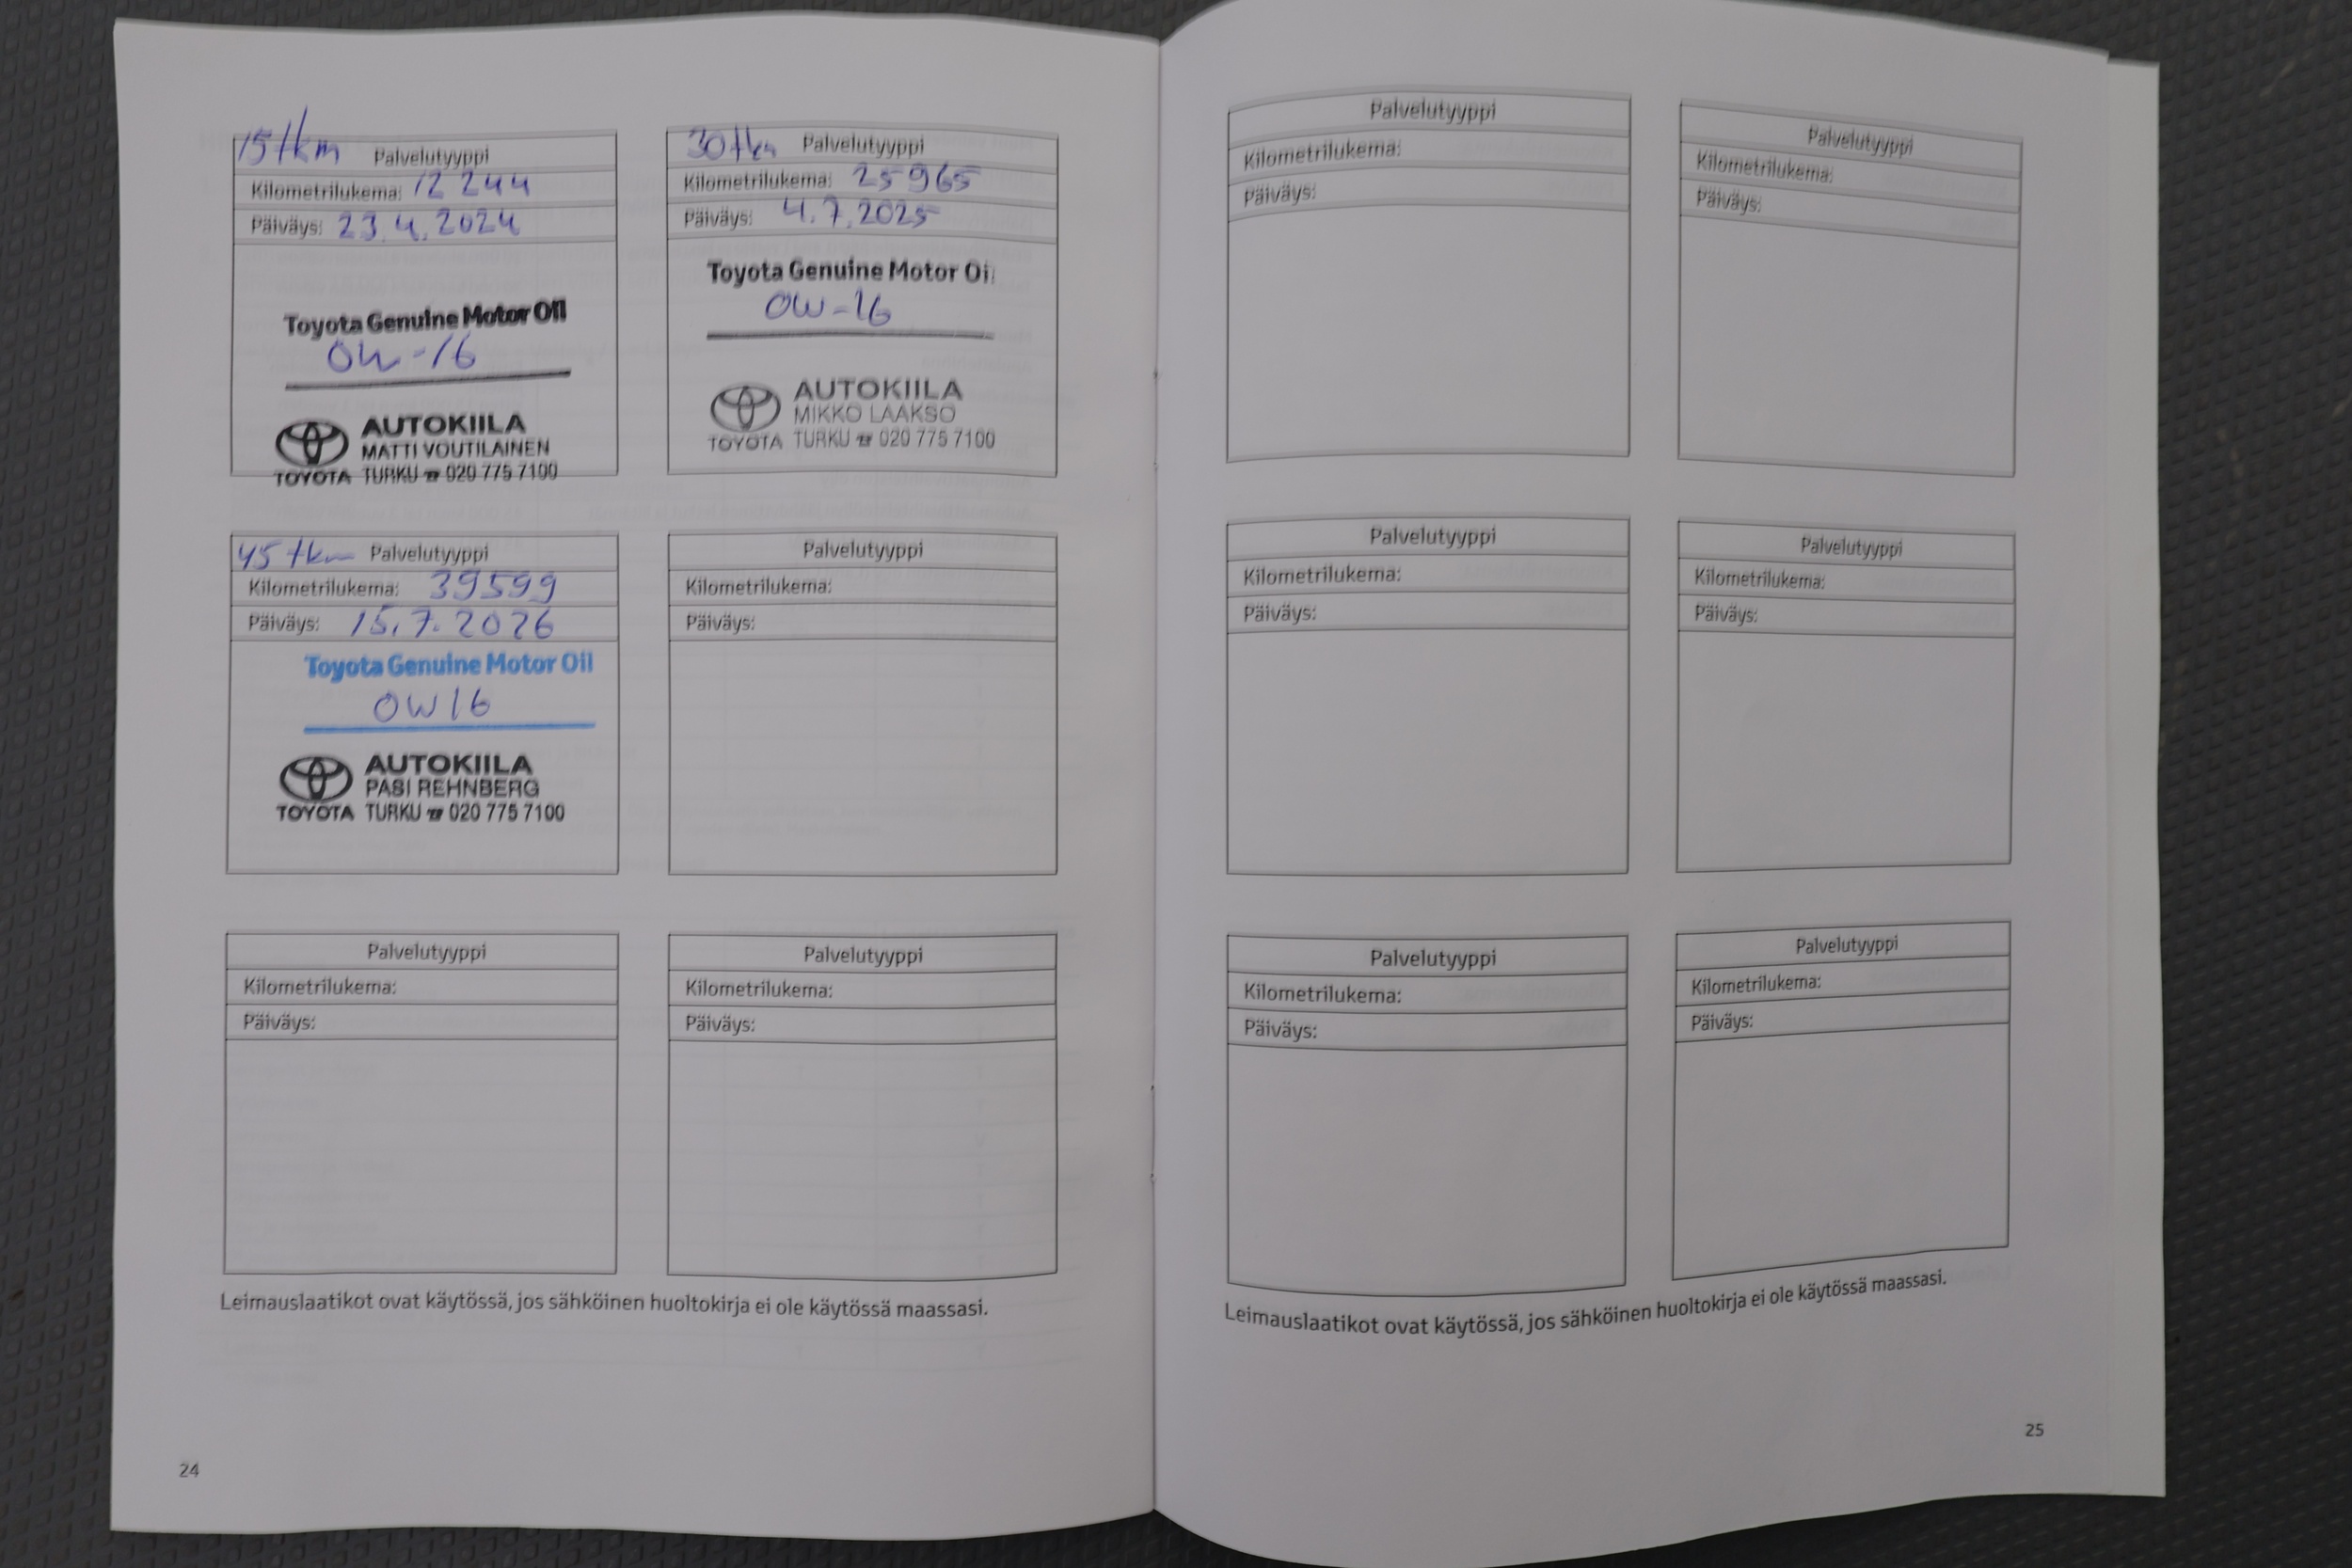 15 tkm Palvelutyyppi
Kilometrilukema: 12 244
Päiväys: 23.4.2024
Toyota Genuine Motor Oil
0W-16
AUTOKIILA
MATTI VOUTILAINEN
TOYOTA TURKU ☎ 020 775 7100
30 tkm Palvelutyyppi
Kilometrilukema: 25 965
Päiväys: 4.7.2025
Toyota Genuine Motor Oil
0W-16
AUTOKIILA
MIKKO LAAKSO
TOYOTA TURKU ☎ 020 775 7100
45 tkm Palvelutyyppi
Kilometrilukema: 39599
Päiväys: 15.7.2026
Toyota Genuine Motor Oil
0W16
AUTOKIILA
PASI REHNBERG
TOYOTA TURKU ☎ 020 775 7100
Palvelutyyppi
Kilometrilukema:
Päiväys:
Palvelutyyppi
Kilometrilukema:
Päiväys:
Palvelutyyppi
Kilometrilukema:
Päiväys:
Leimauslaatikot ovat käytössä, jos sähköinen huoltokirja ei ole käytössä maassasi.
24
Palvelutyyppi
Kilometrilukema:
Päiväys:
Palvelutyyppi
Kilometrilukema:
Päiväys:
Palvelutyyppi
Kilometrilukema:
Päiväys:
Palvelutyyppi
Kilometrilukema:
Päiväys:
Palvelutyyppi
Kilometrilukema:
Päiväys:
Palvelutyyppi
Kilometrilukema:
Päiväys:
Leimauslaatikot ovat käytössä, jos sähköinen huoltokirja ei ole käytössä maassasi.
25